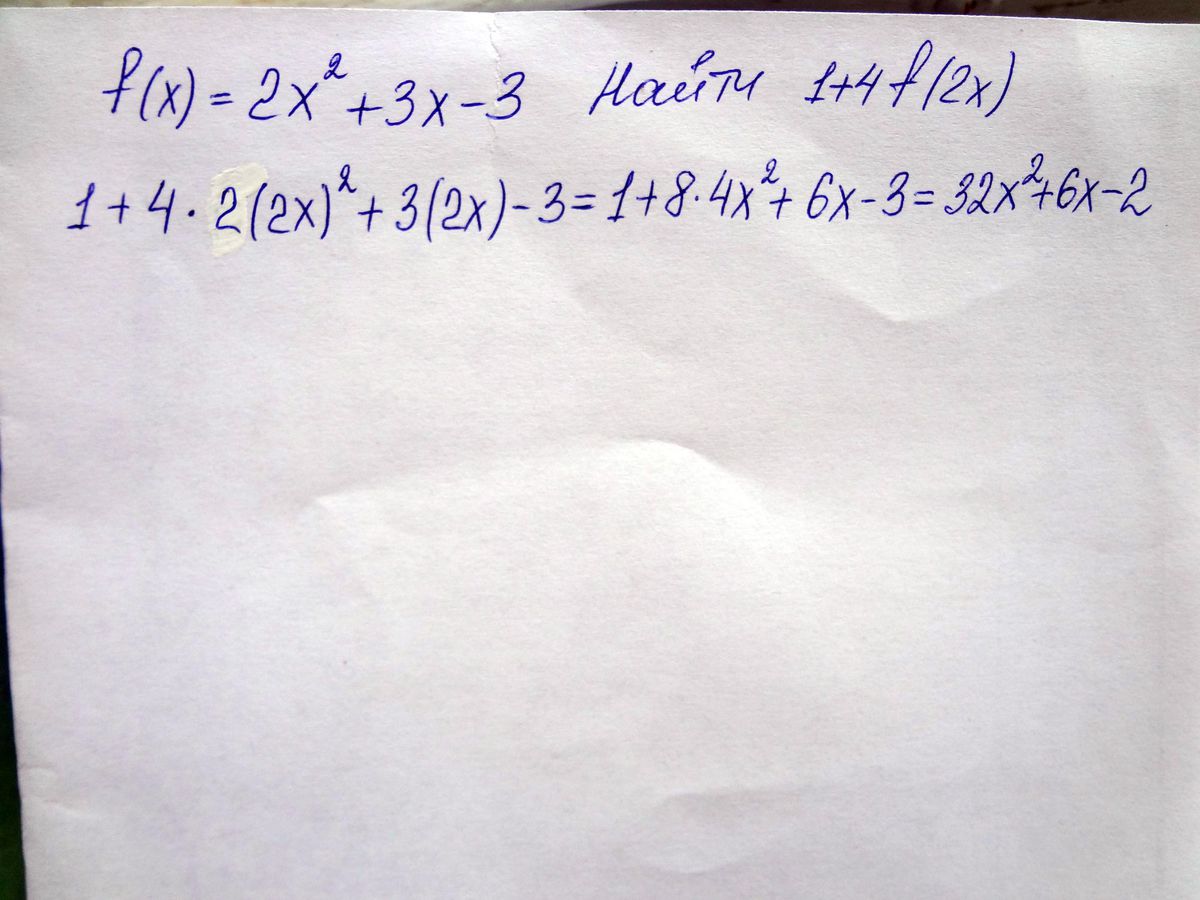 f(x) = 2x² + 3x - 3 Найти 1+4f(2x)
1 + 4 · 2(2x)² + 3(2x) - 3 = 1 + 8 · 4x² + 6x - 3 = 32x² + 6x - 2